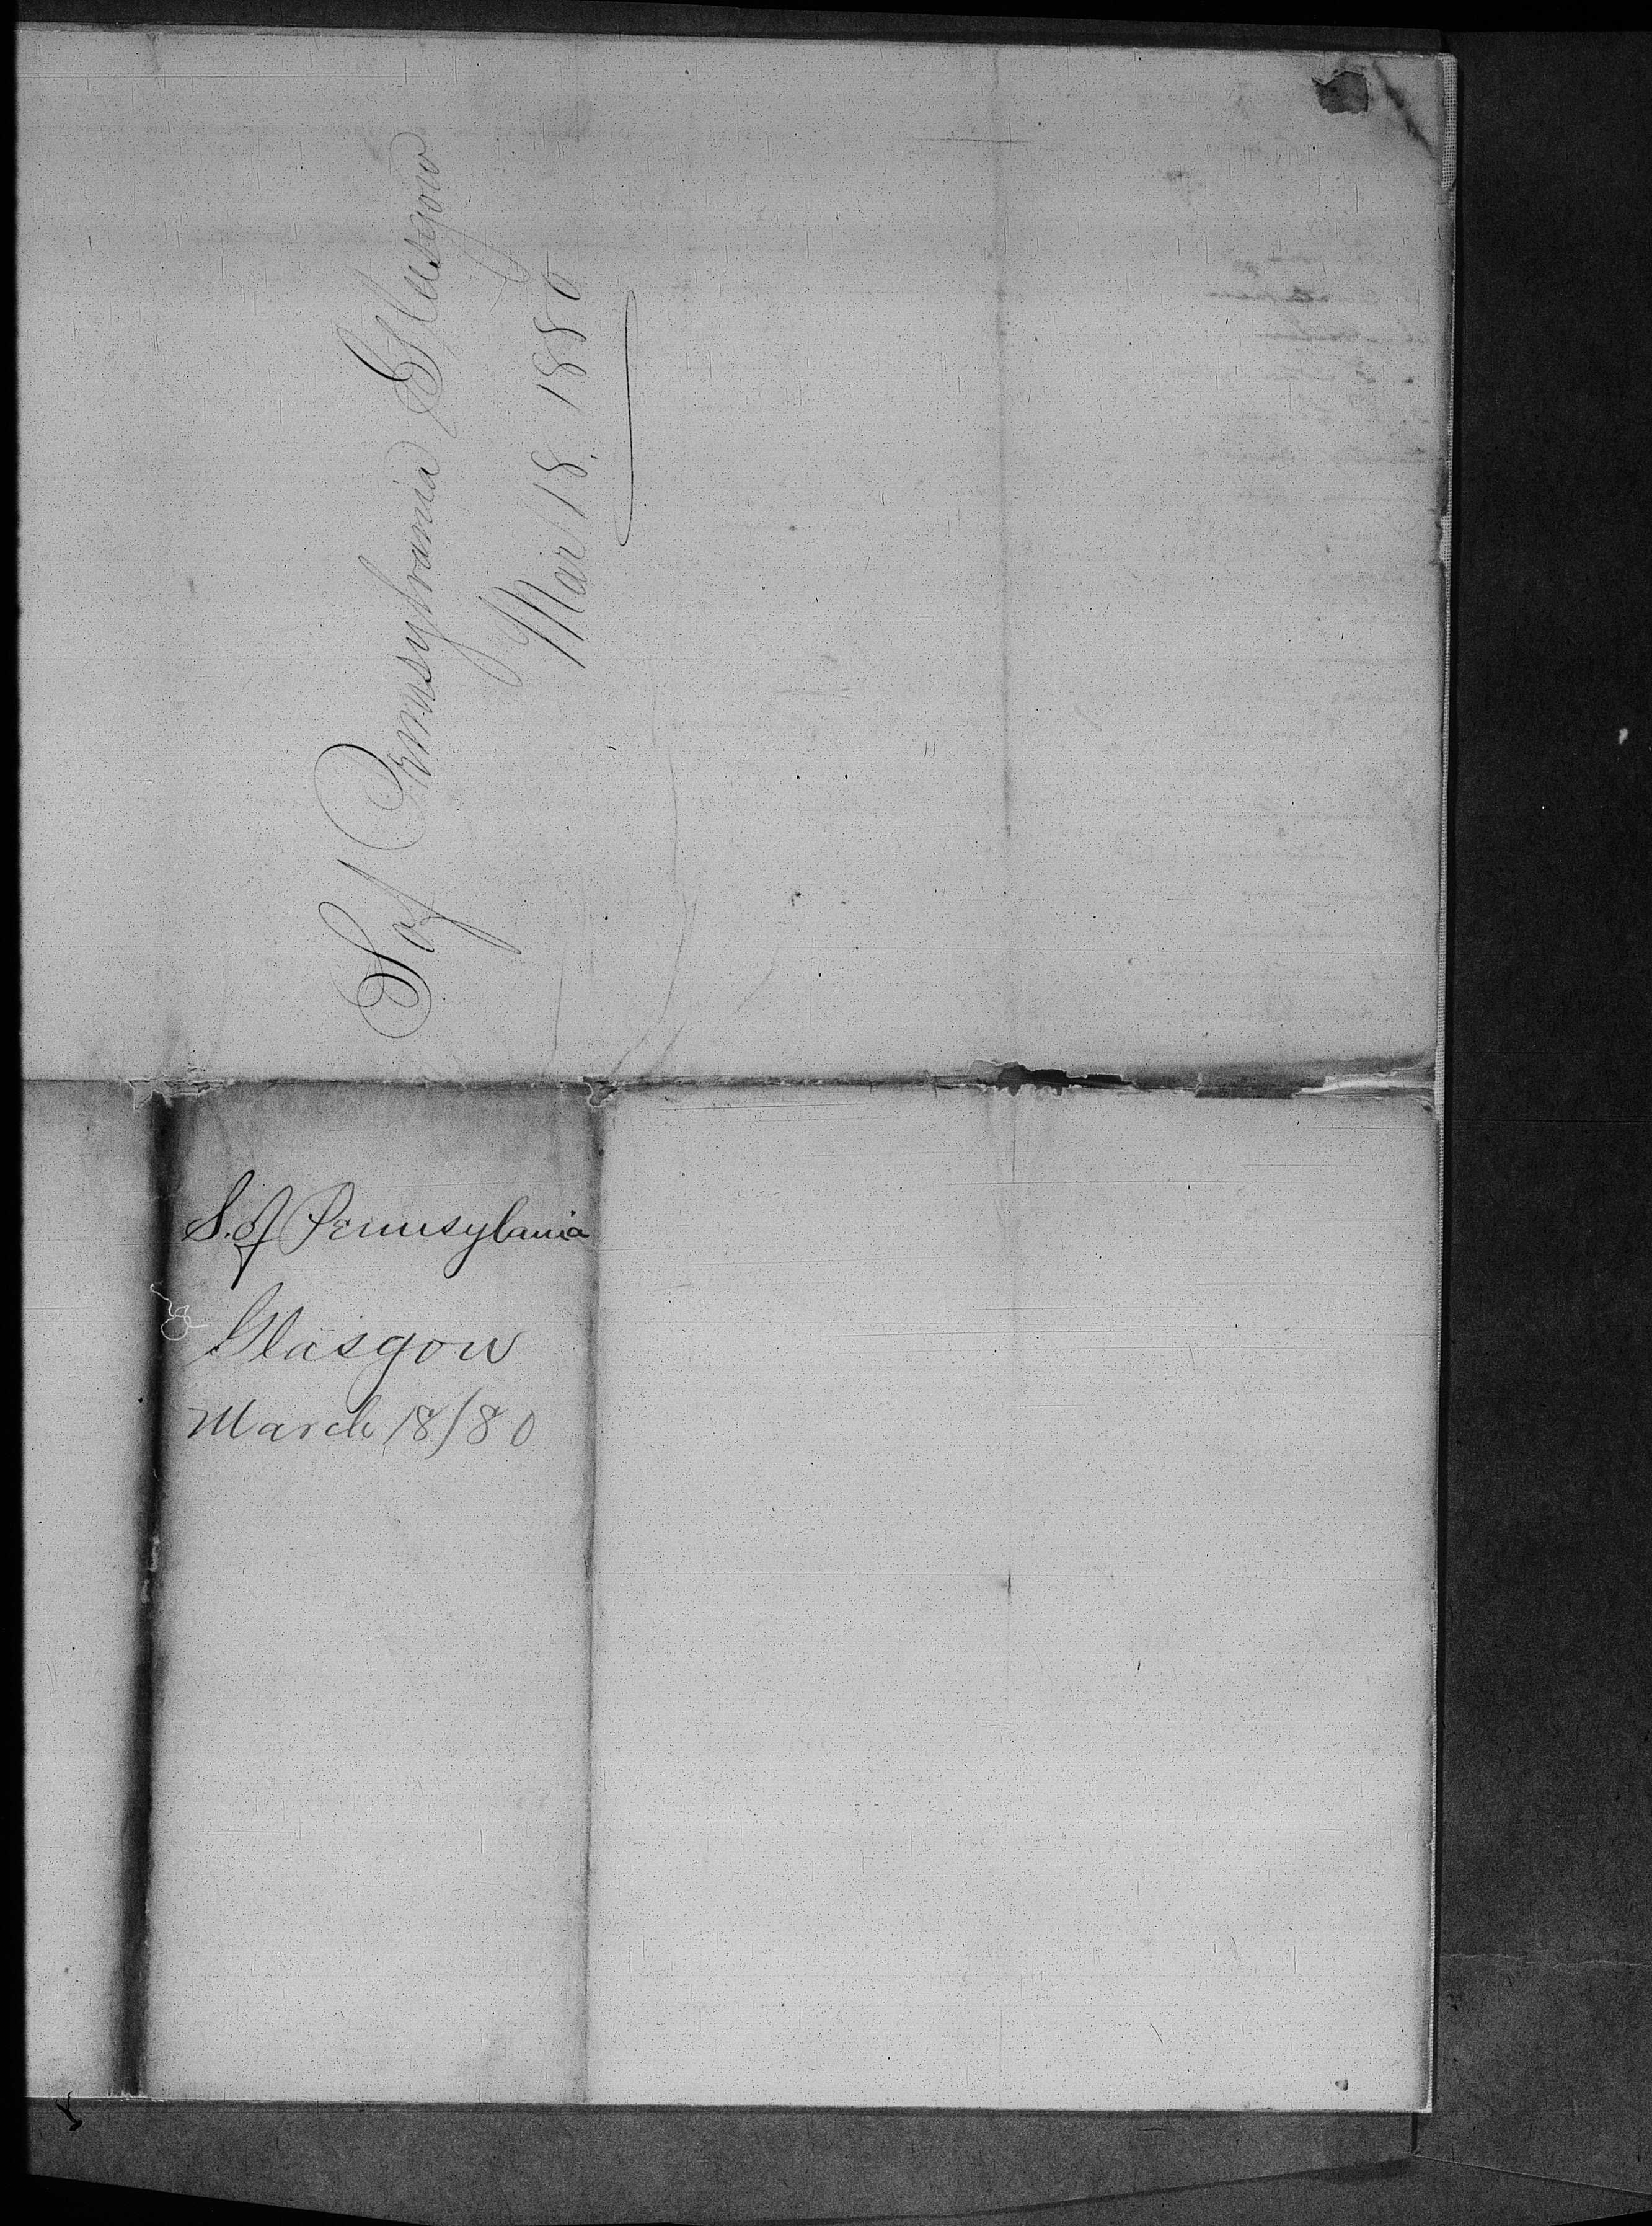 S of Pennsylvania Glasgow
Mar 18. 1880
S. of Pennsylvania
Glasgow
March 18/80